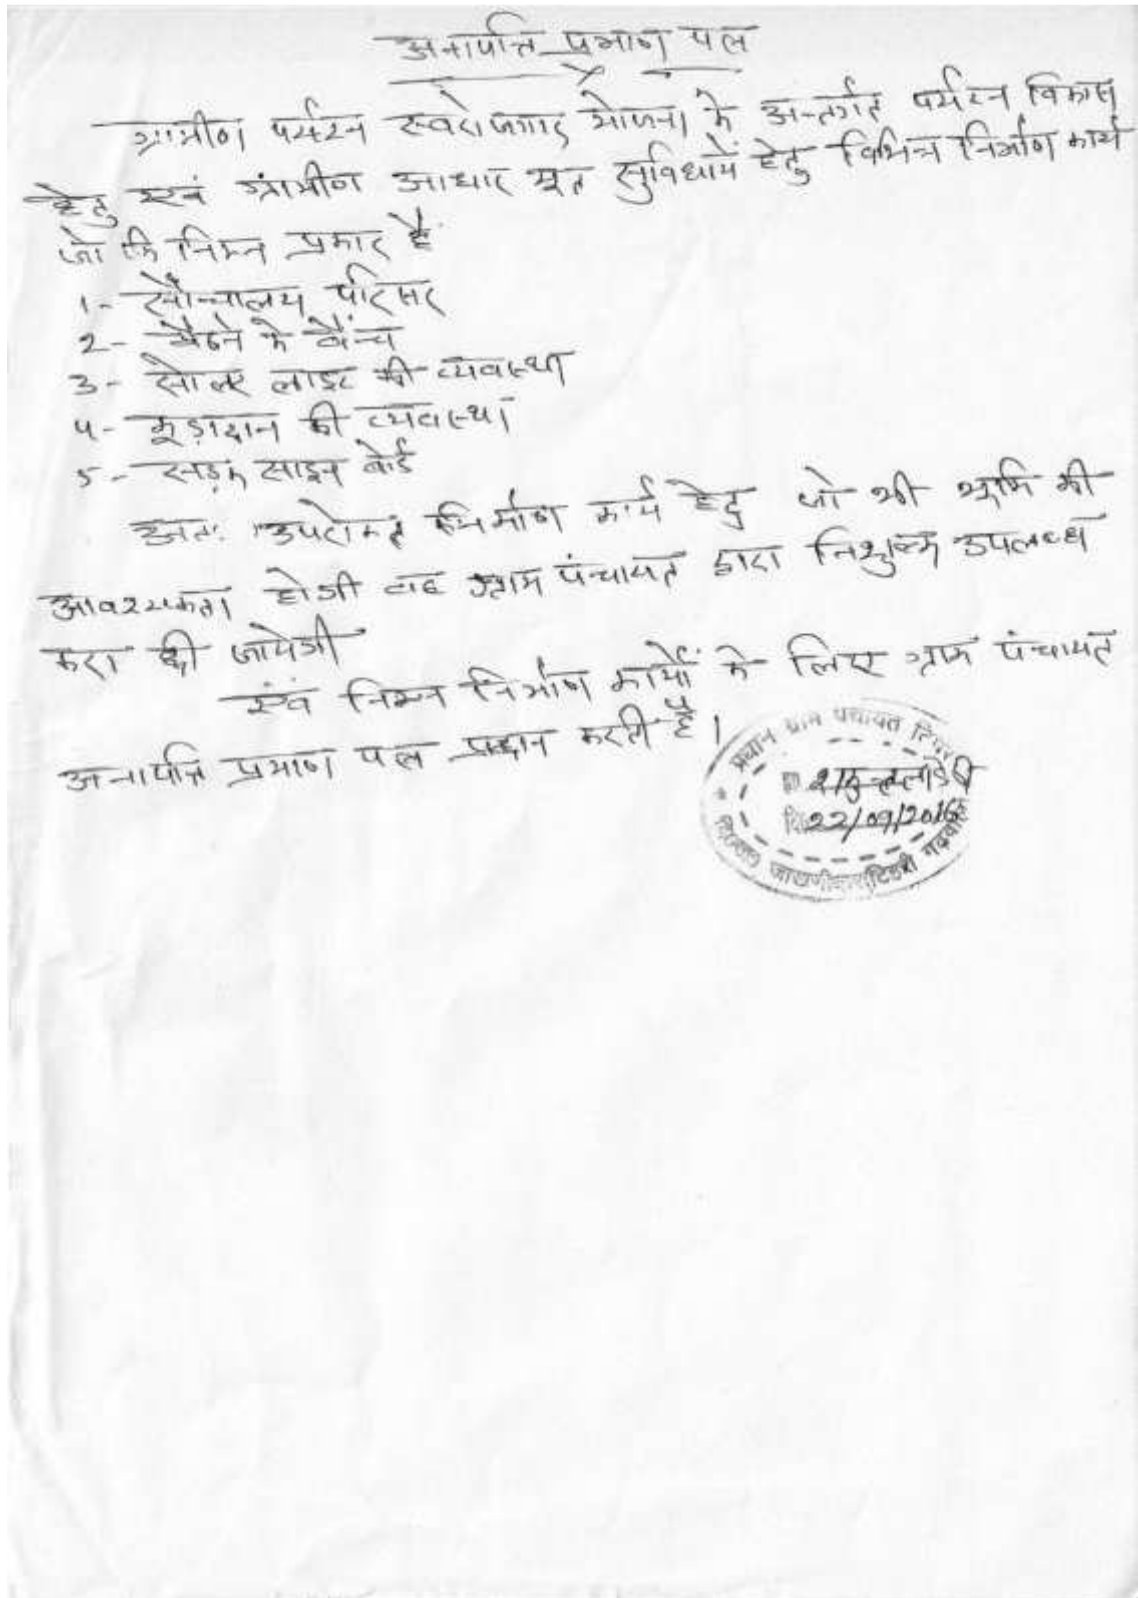 अनापत्ति प्रमाण पत्र
ग्रामीण पर्यटन स्वरोजगार योजना के अन्तर्गत पर्यटन विकास
हेतु एवं ग्रामीण आधार भूत सुविधायें हेतु विभिन्न निर्माण कार्य
जो कि निम्न प्रकार है
1- सौचालय परिसर
2- बैठने के बैंन्च
3- सोलर लाइट की व्यवस्था
4- कूड़ादान की व्यवस्था
5- सड़क साइन बोर्ड
अतः उपरोक्त निर्माण कार्य हेतु जो भी भूमि की
आवश्यकता होगी वह ग्राम पंचायत द्वारा निशुल्क उपलब्ध
करा दी जायेगी
एवं निम्न निर्माण कार्यों के लिए ग्राम पंचायत
अनापत्ति प्रमाण पत्र प्रदान करती है।
प्रधान ग्राम पंचायत
शकुन्तला देवी
दि 22/09/2016
टिहरी गढ़वाल